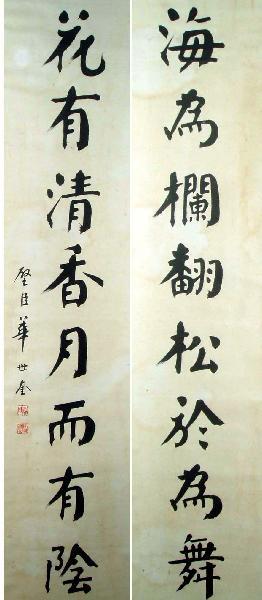 海為欄翻松於為舞
花有清香月而有陰
璧臣華世奎